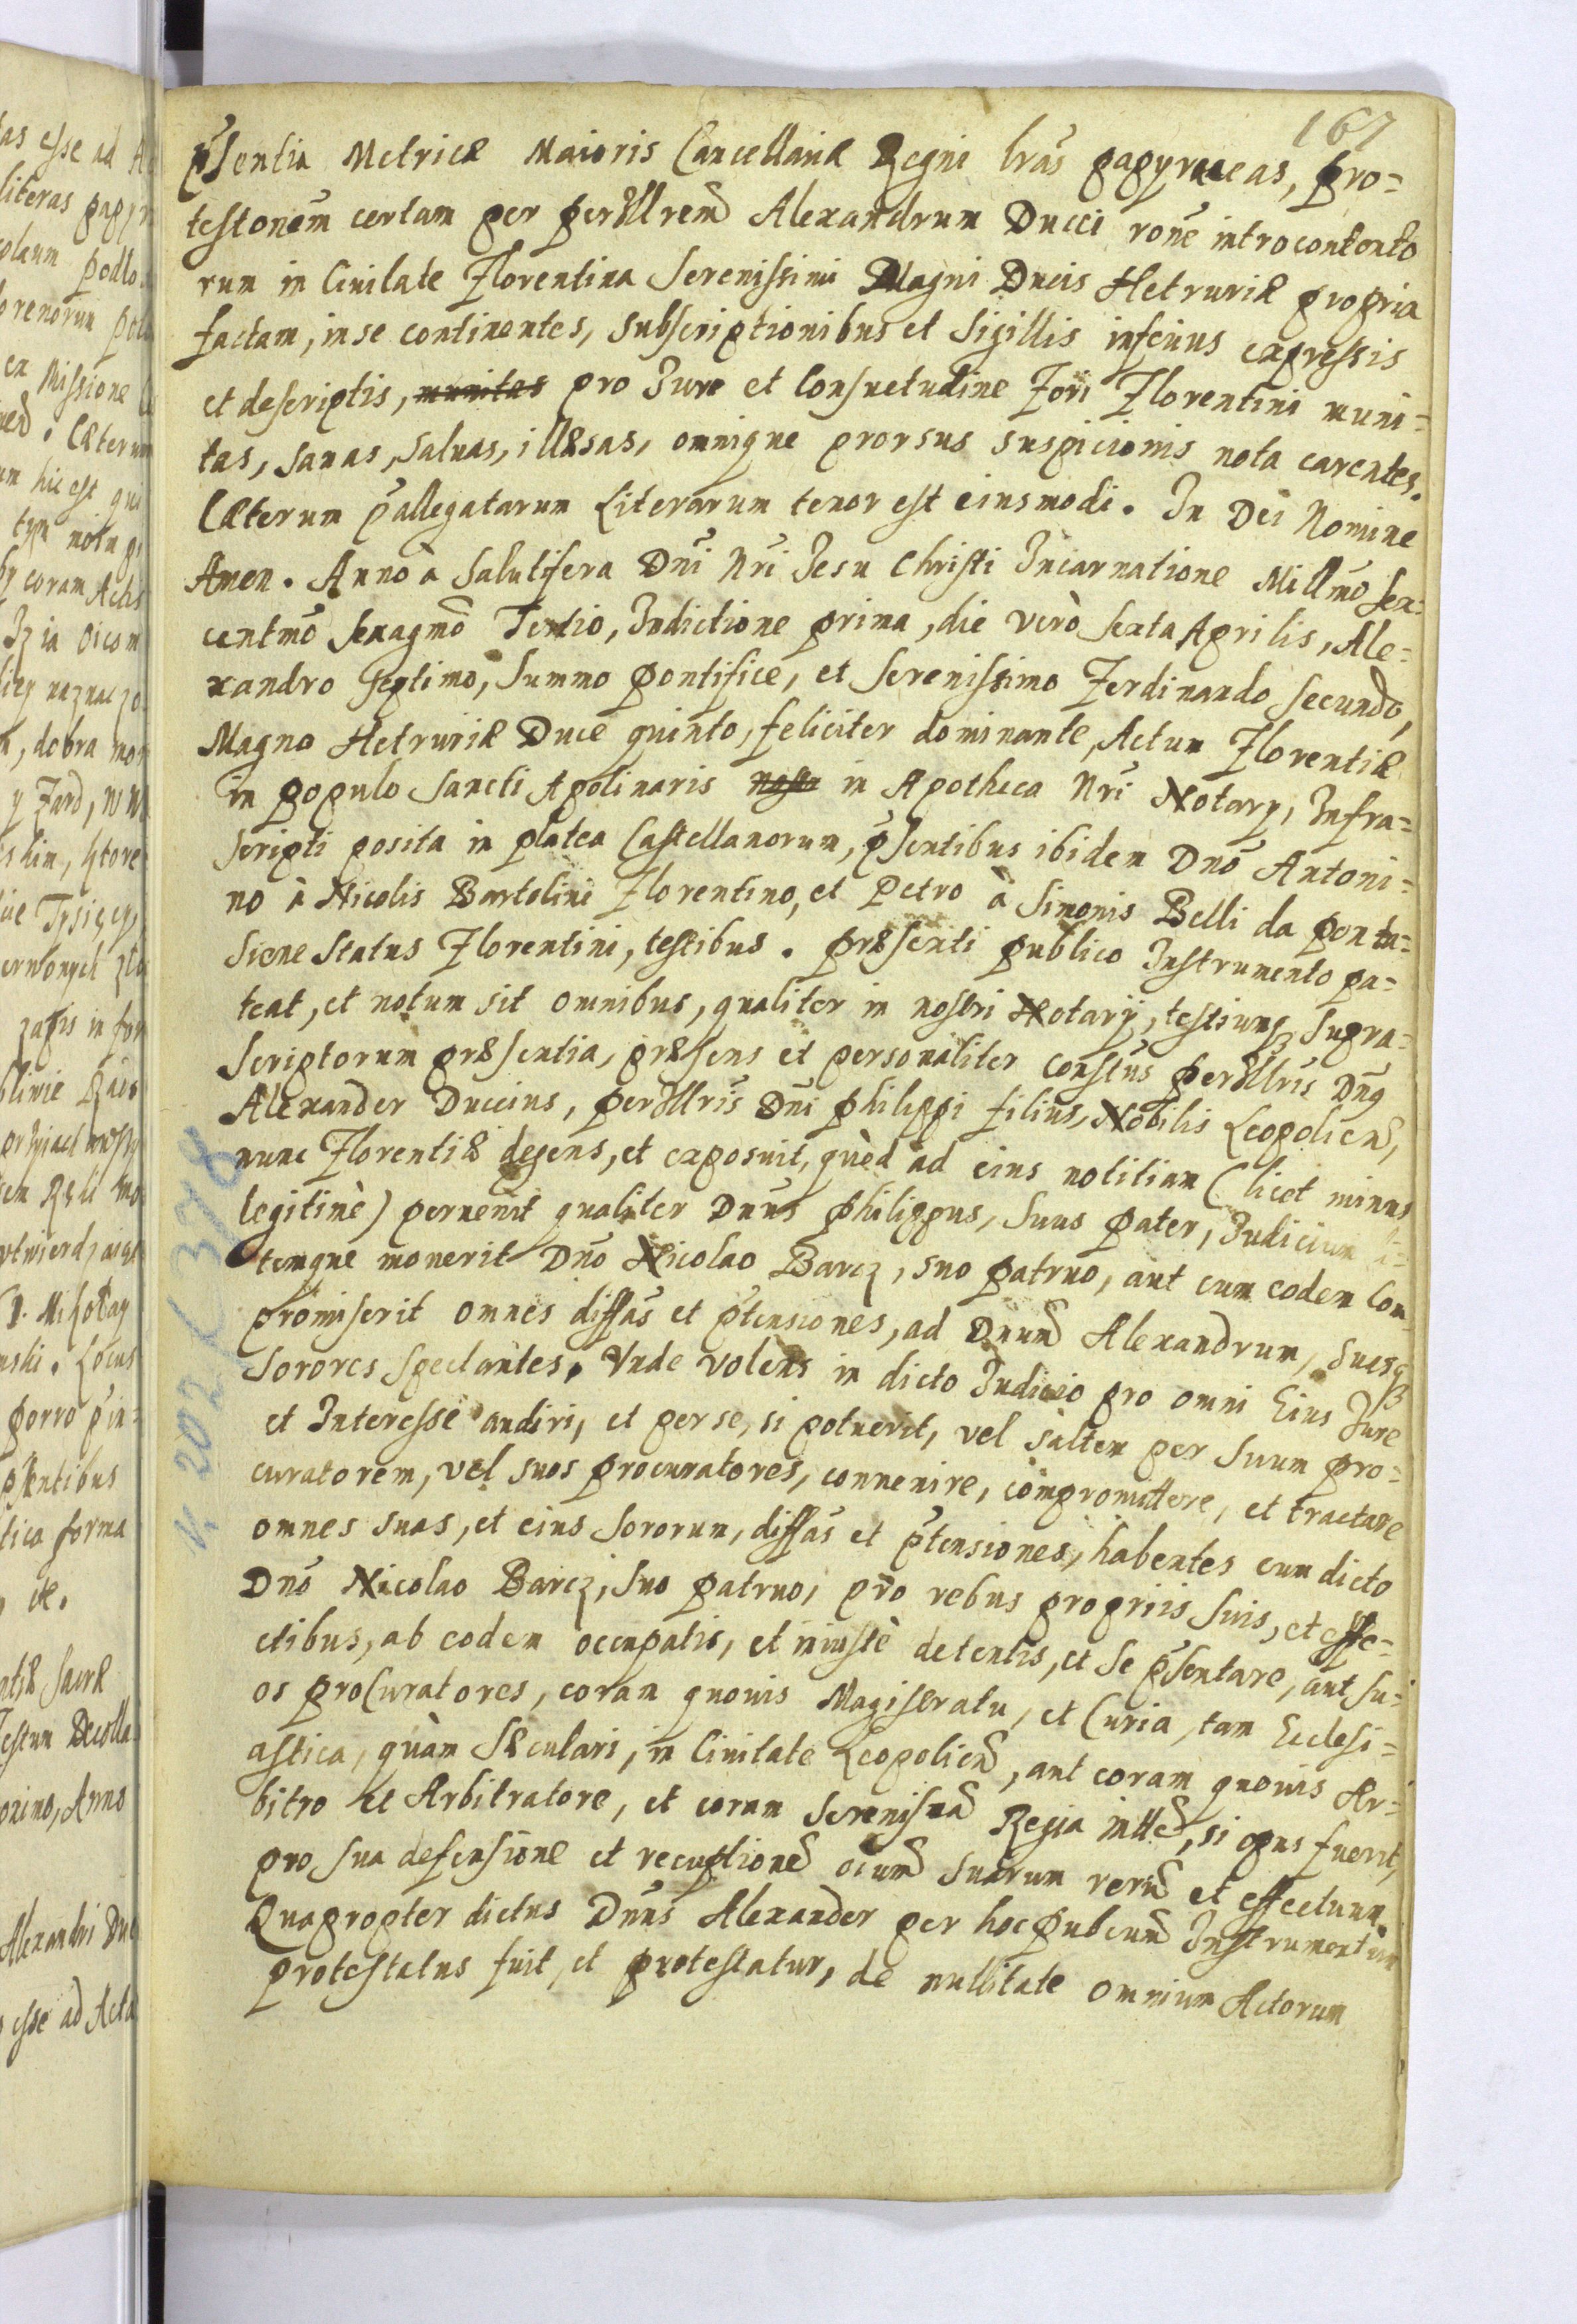 167
p̃sentia Metricæ Maioris Cancellariæ Regni lrãs papyraceas, pro=
testonẽm certam per perIllrem Alexandrum Ducci rone introcontento
rum in Ciuitate Florentina Serenissimi Magni Ducis Hetruriæ propria
factam, in se continentes, Subscriptionibus et Sigillis inferius expressis
et descriptis, munitas pro Jure et Consuetudine Fori Florentini muni=
tas, sanas, saluas, illæsas, omnique prorsus suspicionis nota carentes.
Cæterum p̃allegatarum Literarum tenor est eiusmodi. In Dei Nomine
Amen. Anno à Salutifera Dni Nri Jesu Christi Incarnatione Millmo Sex=
centmo Sexagmo Tertio, Indictione prima, die verò Sexta Aprilis, Ale=
xandro Septimo, Summo pontifice, et Serenissimo Ferdinando Secundo,
Magno Hetruriæ Duce quinto, feliciter dominante, Actum Florentiæ
in populo Sancti Apolinaris in Apotheca Nri Notary, Infra=
scripti posita in platea Castellanorum, p̃sentibus ibidem Dno Antoni=
no à Nicolis Bartolini Florentino, et Petro à Simonis Belli da ponta=
sione Status Florentini, testibus. præsenti publico Instrumento pa=
teat, et notum sit omnibus, qualiter in nostri Notarÿ, testiumq, supra=
scriptorum præsentia, præsens et personaliter constus perIllris Dnus
Alexander Duccius, perIllris Dni philippi filius, Nobilis Leopolien,
nunc Florentiæ degens, et exposuit, quòd ad eius notitiam (licet minus
legitimè) peruenit qualiter Dnus philippus, Suus pater, Judicium
temque mouerit Dno Nicolao Barcz, suo patruo, aut cum eodem Com=
promiserit omnes diffas et p̃tensiones, ad Dnum Alexandrum, Suasq
Sorores Spectantes. Vnde volens in dicto Judicio pro omni Eius Jure
et Interesse audiri, et per se, si potuerit, vel saltem per Suum pro=
curatorem, vel suos procuratores, conuenire, compromittere, et tractare
omnes suas, et eius Sororum, diffas et p̃tensiones, habentes cum dicto
Dno Nicolao Barcz, Suo patruo, pro rebus propriis Suis, et effe=
ctibus, ab eodem occupatis, et iniustè detentis, et Se p̃sentare, aut Su=
os procuratores, coram quouis Magistratu, et Curia, tam Ecclesi=
astica, quàm Sæculari, in Ciuitate Leopolien, aut coram quouis Ar=
bitro et Arbitratore, et coram Serenisma Regia Mtte, si opus fuerit,
pro sua defensione et recuptione oium suarum rerum et effectuum
Quapropter dictus Dnus Alexander per hoc pubcum Instrumentum
protestatus fuit, et protestatur, de nullitate omnium Actorum